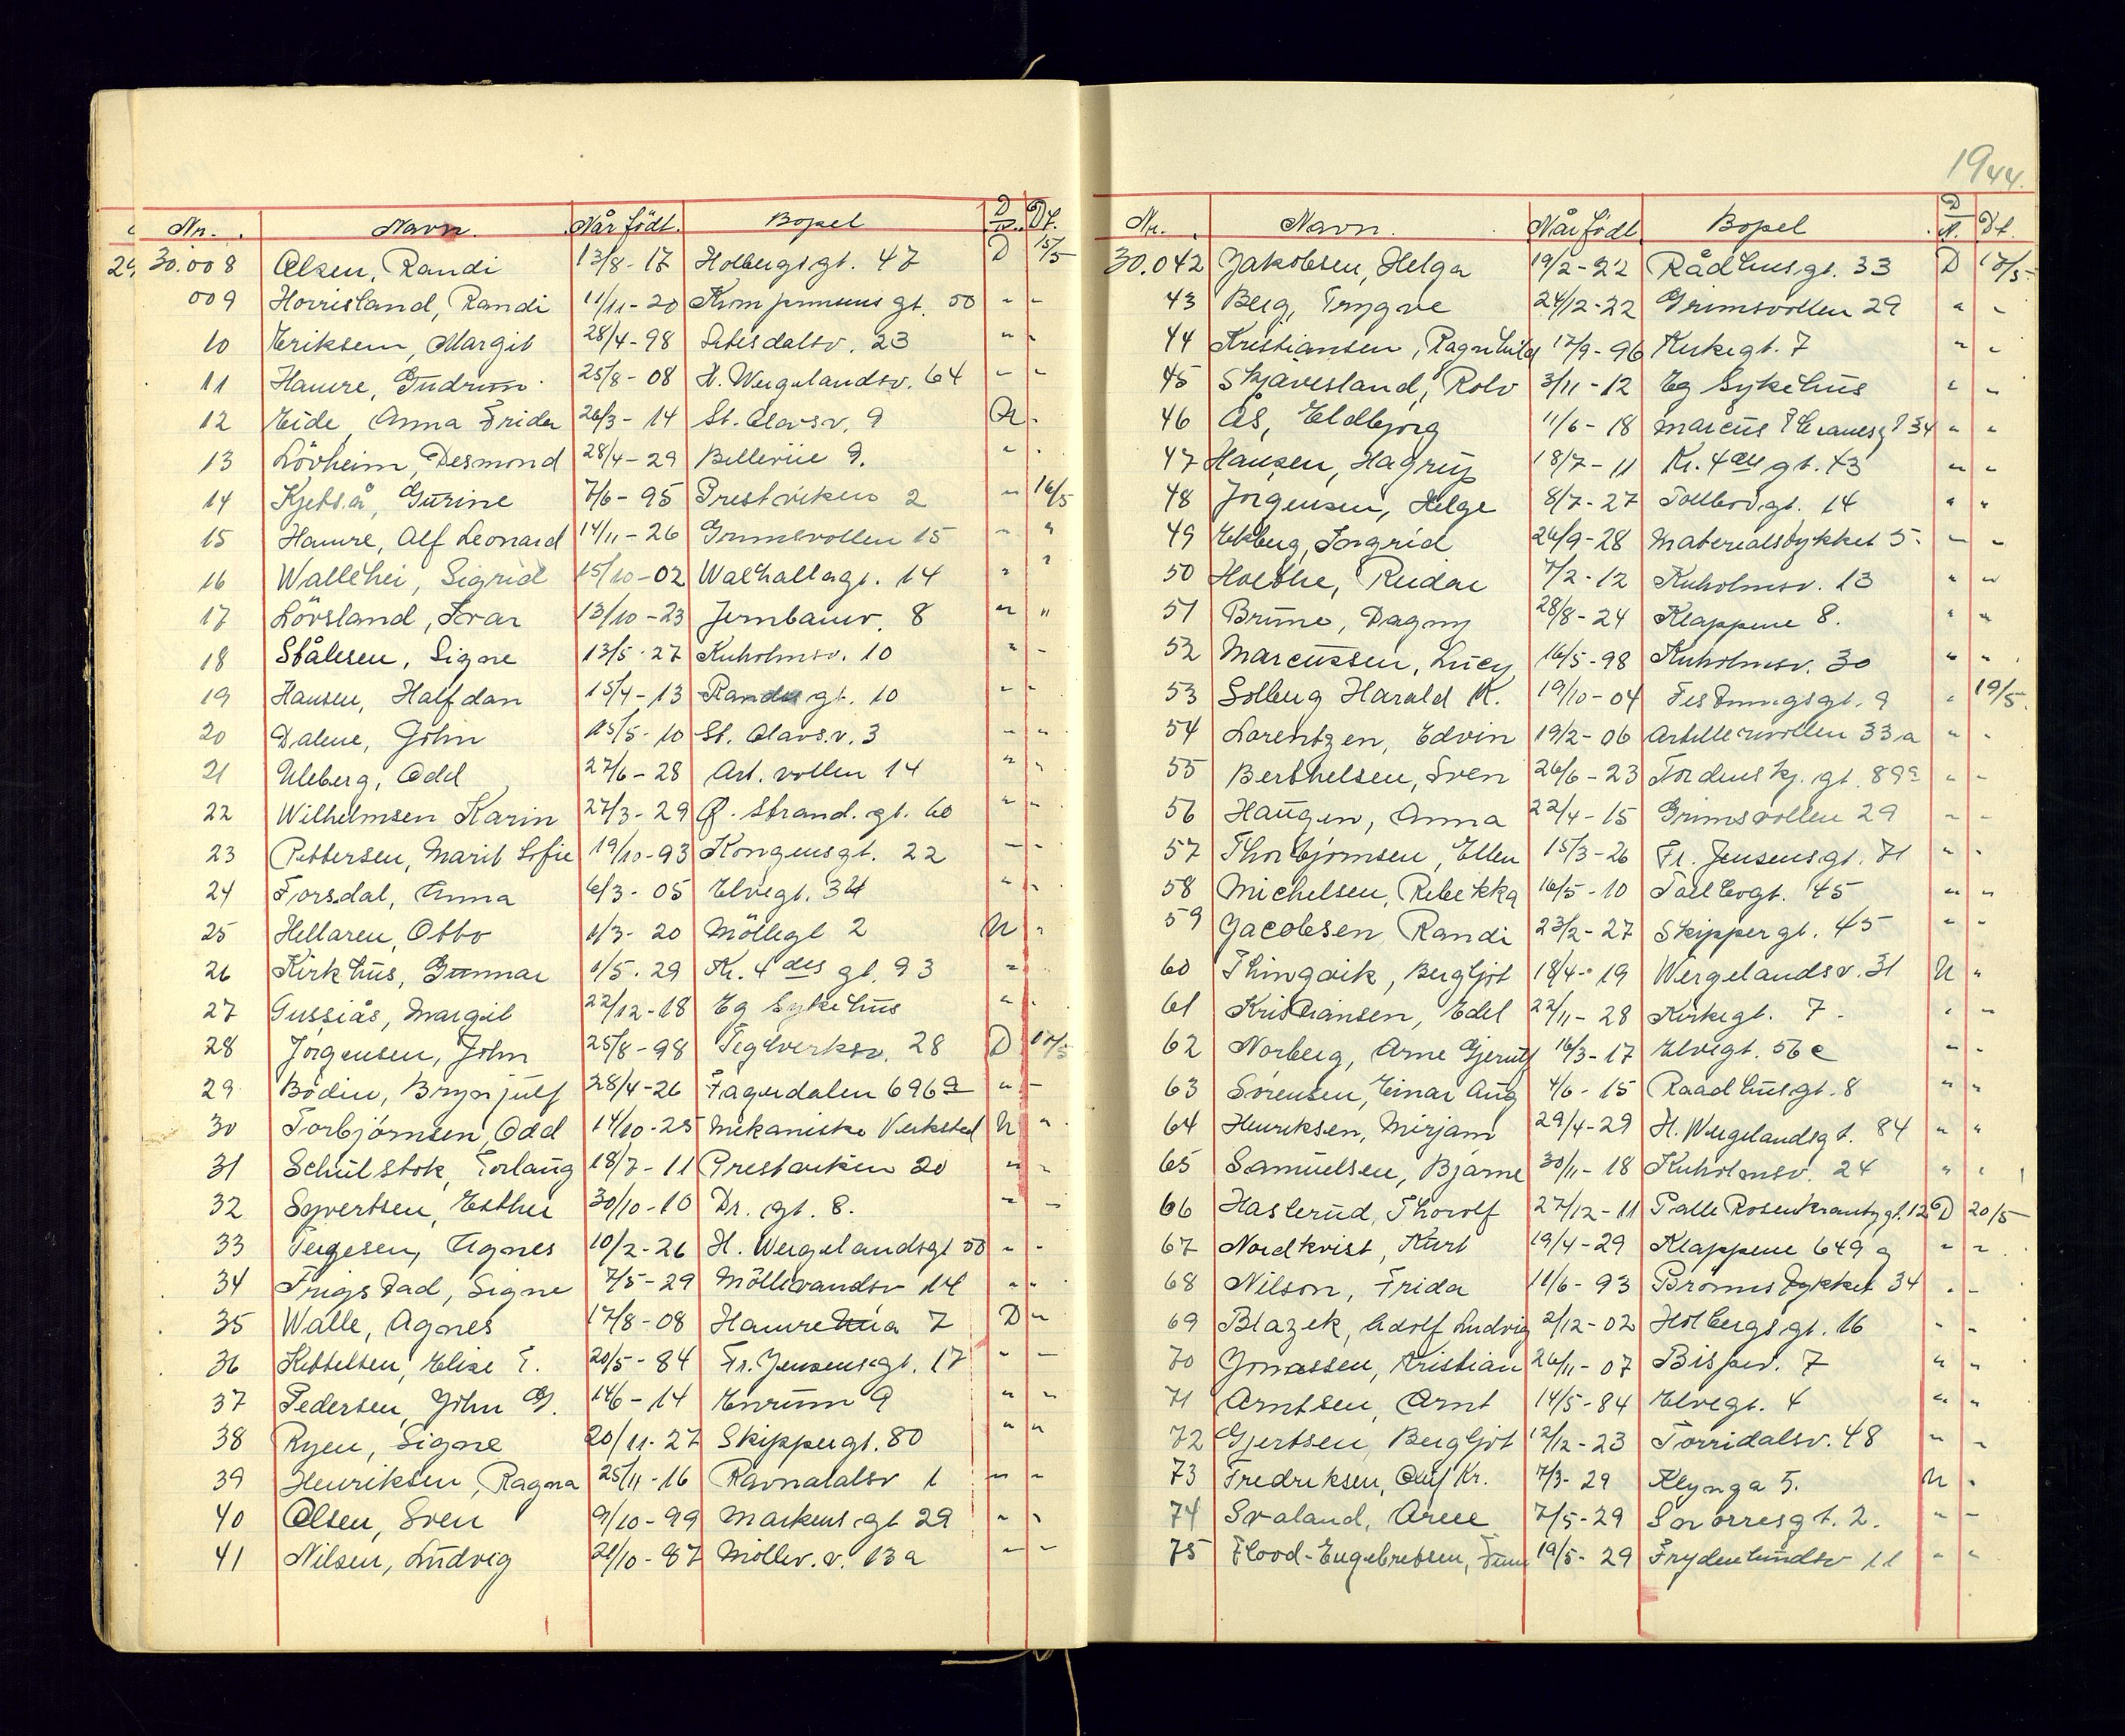 Nr. Navn. Når født. Bopel D/N. Dt.
30.008 Olsen, Randi 13/8-17 Holbergsgt. 47 D 15/5
009 Horrisland, Randi 11/11-20 gt. 50 " "
10 Eriksen, Margit 28/4-98 Setesdalsv. 23 " "
11 Hamre, Gudrun 25/8-08 H. Wergelandsv. 64 " "
12 Eide, Anna Frida 26/3-14 St. Olavsv. 9 N "
13 Lövheim, Desmond 28/4-29 Bellevue 9. " "
14 Kjetså, Gurine 7/6-95 Prestviken 2 " 16/5
15 Hamre, Alf Leonard 14/11-26 Grimsvollen 15 " "
16 Wallehei, Sigrid 15/10-02 Walhallagt. 14 " "
17 Lövsland, Ivar 13/10-23 Jernbanev. 8 " "
18 Stålesen, Signe 13/5-27 Kuholmsv. 10 " "
19 Hansen, Halfdan 15/4-13 gt. 10 " "
20 Dalene, John 15/5-10 St. Olavs.v. 3 " "
21 Uleberg, Odd 27/6-28 Art. vollen 14 " "
22 Wilhelmsen Karin 27/3-29 Ø. Strand. gt. 60 " "
23 Pettersen, Marit Sofie 19/10-93 Kongensgt. 22 " "
24 Forsdal, Anna 6/3-05 Elvegt. 34 " "
25 Hellaren, Otto 1/3-20 Möllegt 2 N "
26 Kirkhus, Gunnar 1/5-29 Kr. 4des gt. 93 "
27 Gussiås, Margit 22/12-18 Eg Sykehus " "
28 Jörgensen, John 25/8-98 Teglverksv. 28 D 17/5
29 Bödin, Brynjulf 28/4-26 Fagerdalen 696a " "
30 Torbjörnsen, Odd 14/10-25 Mekaniske Verksted N "
31 Schulstok, Torlaug 18/7-11 Prestviken 20 " "
32 Syvertsen, Esther 30/10-10 Dr. gt. 8. " "
33 Tergesen, Agnes 10/2-26 H. Wergelandsgt 50 " "
34 Trigstad, Signe 7/5-29 Möllevandsv 14 " "
35 Walle, Agnes 17/8-08 7 D "
36 Kittelsen, Elise E. 20/5-84 Fr. Jensensgt. 17 " "
37 Pedersen, John G. 14/6-14 Enrum 9 " "
38 Ryen, Signe 20/11-27 Skippergt. 80 " "
39 Henriksen, Ragna 25/11-16 Ravnadalsv 1 " "
40 Olsen, Sven 9/10-99 Markens.gt 29 " "
41 Nilsen, Ludvig 21/10-87 Möllev.v. 13a " "
1944.
Nr. Navn. Når födt. Bopel D/N. Dt.
30.042 Jakobsen, Helga 19/2-22 Rådhusgt. 33 D 17/5
43 Berg, Trygve 24/12-22 Grimsvollen 29 " "
44 Kristiansen, Ragnhild 17/9-96 Kirkegt. 7 " "
45 Skjævesland, Rolv 3/11-12 Eg Sykehus " "
46 Ås, Eldbjörg 11/6-18 Marcus Thranesgt 34 " "
47 Hansen, Hagrup 18/7-11 Kr. 4des gt. 43 " "
48 Jörgensen, Helge 8/7-27 Tollbodgt. 14 " "
49 Ekberg, Ingrid 26/9-28 Materialstykket 5. " "
50 Holthe, Reidar 7/2-12 Kuholmsv. 13 " "
51 Brune, Dagny 28/8-24 Klappene 8. " "
52 Marcussen, Lucy 16/5-98 Kuholmsv. 30 " "
53 Solberg Harald K. 19/10-04 Festningsgt. 9 " 19/5
54 Lorentzen, Edvin 19/2-06 Artillerivollen 33a " "
55 Berthelsen, Sven 26/6-23 Tordenskj. gt. 89a " "
56 Haugen, Anna 22/4-15 Grimsvollen 29 " "
57 Thorbjörnsen, Ellen 15/3-26 Fr. Jensensgt. 71 " "
58 Michelsen, Rebekka 16/5-10 Tollbogt. 45 " "
59 Jacobsen Randi 23/2-27 Skippergt. 45 " "
60 Thingvik, Bergljot 18/4-19 Wergelandsv. 31 N "
61 Kristiansen, Edel 22/11-28 Kirkegt. 7. " "
62 Norberg, Arne Gjerulf 16/3-17 Elvegt. 56c " "
63 Sörensen, Einar Aug 4/6-15 Raadhusgt. 8 " "
64 Henriksen, Mirjam 29/4-29 H. Wergelandsgt. 84 " "
65 Samuelsen, Bjarne 30/11-18 Kuholmsv. 24 " "
66 Haslerud, Thorolf 27/12-11 Palle Rosenkrantzgt. 12 D 20/5
67 Nordkvist, Kurt 19/4-29 Klappene 649a " "
68 Nilson, Frida 11/6-93 Brömstykket 34 " "
69 Blazek, Adolf Ludvig 2/12-02 Holbergsgt. 16 " "
70 Jonassen, Kristian 26/11-07 Bispev. 7 " "
71 Arntsen, Arnt 14/5-84 Elvegt. 4 " "
72 Gjertsen, Bergljot 12/12-23 Torridalsv. 48 " "
73 Fredriksen, Oluf Kr. 7/3-29 Klynga 5. N "
74 Svaland, Arne 7/5-29 Snorresgt. 2. " "
75 Flood-Engebretsen, Finn 19/5-29 Frydenlundsv 11 " "